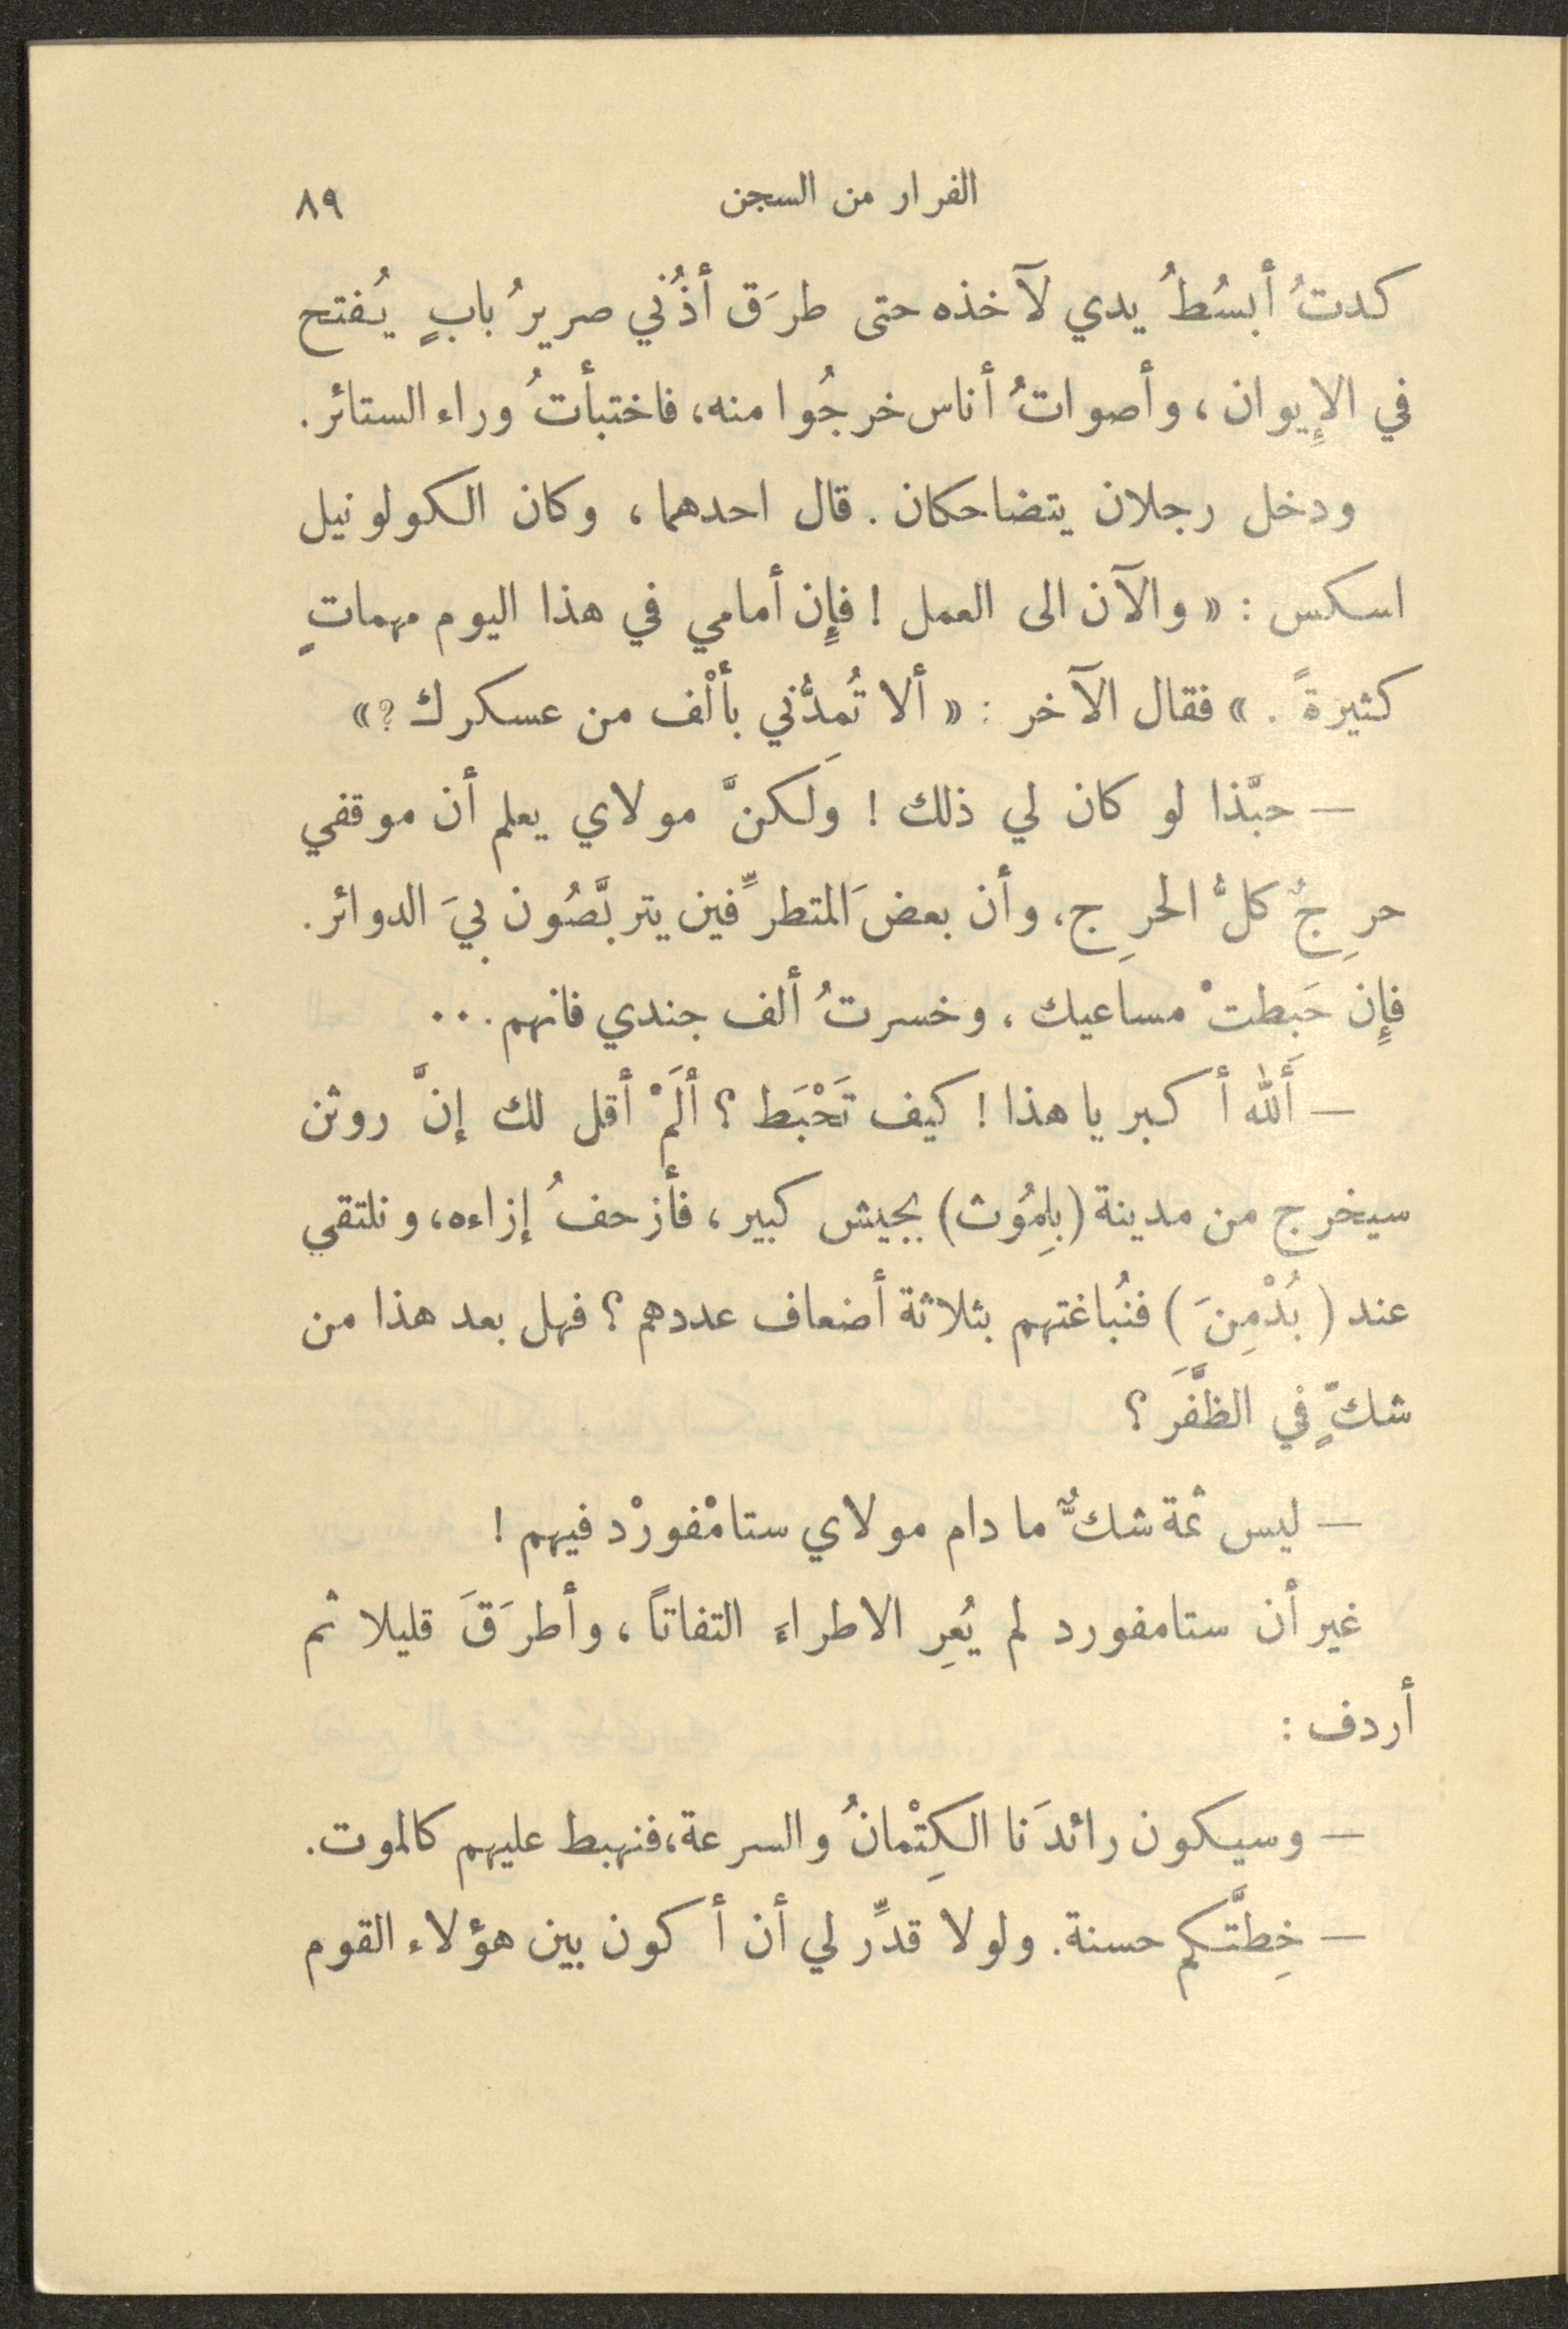 الفرار من السجن ٨٩
كدتُ أبسُطُ يدي لآخذه حتى طرَق أذُني صريرُ بابٍ يُفتح
في الإِيوان، وأصواتُ أناس خرجُوا منه، فاختبأتُ وراء الستائر.
ودخل رجلان يتضاحكان. قال احدهما، وكان الكولونيل
اسكس : « والآن الى العمل ! فإِن أمامي في هذا اليوم مهماتٍ
كثيرةً . » فقال الآخر : « ألا تُمدُّني بألْف من عسكرك ؟ »
— حبَّذا لو كان لي ذلك ! وَلكنَّ مولاي يعلم أن موقفي
حرِجٌ كلُّ الحرِج، وأن بعضَ المتطرِّفين يتربَّصُون بيَ الدوائر.
فإِن حَبطتْ مساعيك، وخسرتُ ألف جندي فانهم...
— أَلله أكبر يا هذا ! كيف تَحْبَط ؟ ألَمْ أقل لك إنَّ روثن
سيخرج من مدينة (بِلِمُوث) بجيش كبير، فأزحفُ إزاءه، ونلتقي
عند ( بُدْمِنَ ) فنُباغتهم بثلاثة أضعاف عددهم ؟ فهل بعد هذا من
شكٍّ في الظَّفَر ؟
— ليس ثمة شكٌّ ما دام مولاي ستامْفورْد فيهم !
غير أن ستامفورد لم يُعِرِ الاطراءَ التفاتاً، وأطرَقَ قليلا ثم
أردف :
— وسيكون رائدَنا الكِتْمانُ والسرعة، فنهبط عليهم كالموت.
— خِطَّتكم حسنة. ولولا قدِّر لي أن أكون بين هؤلاء القوم